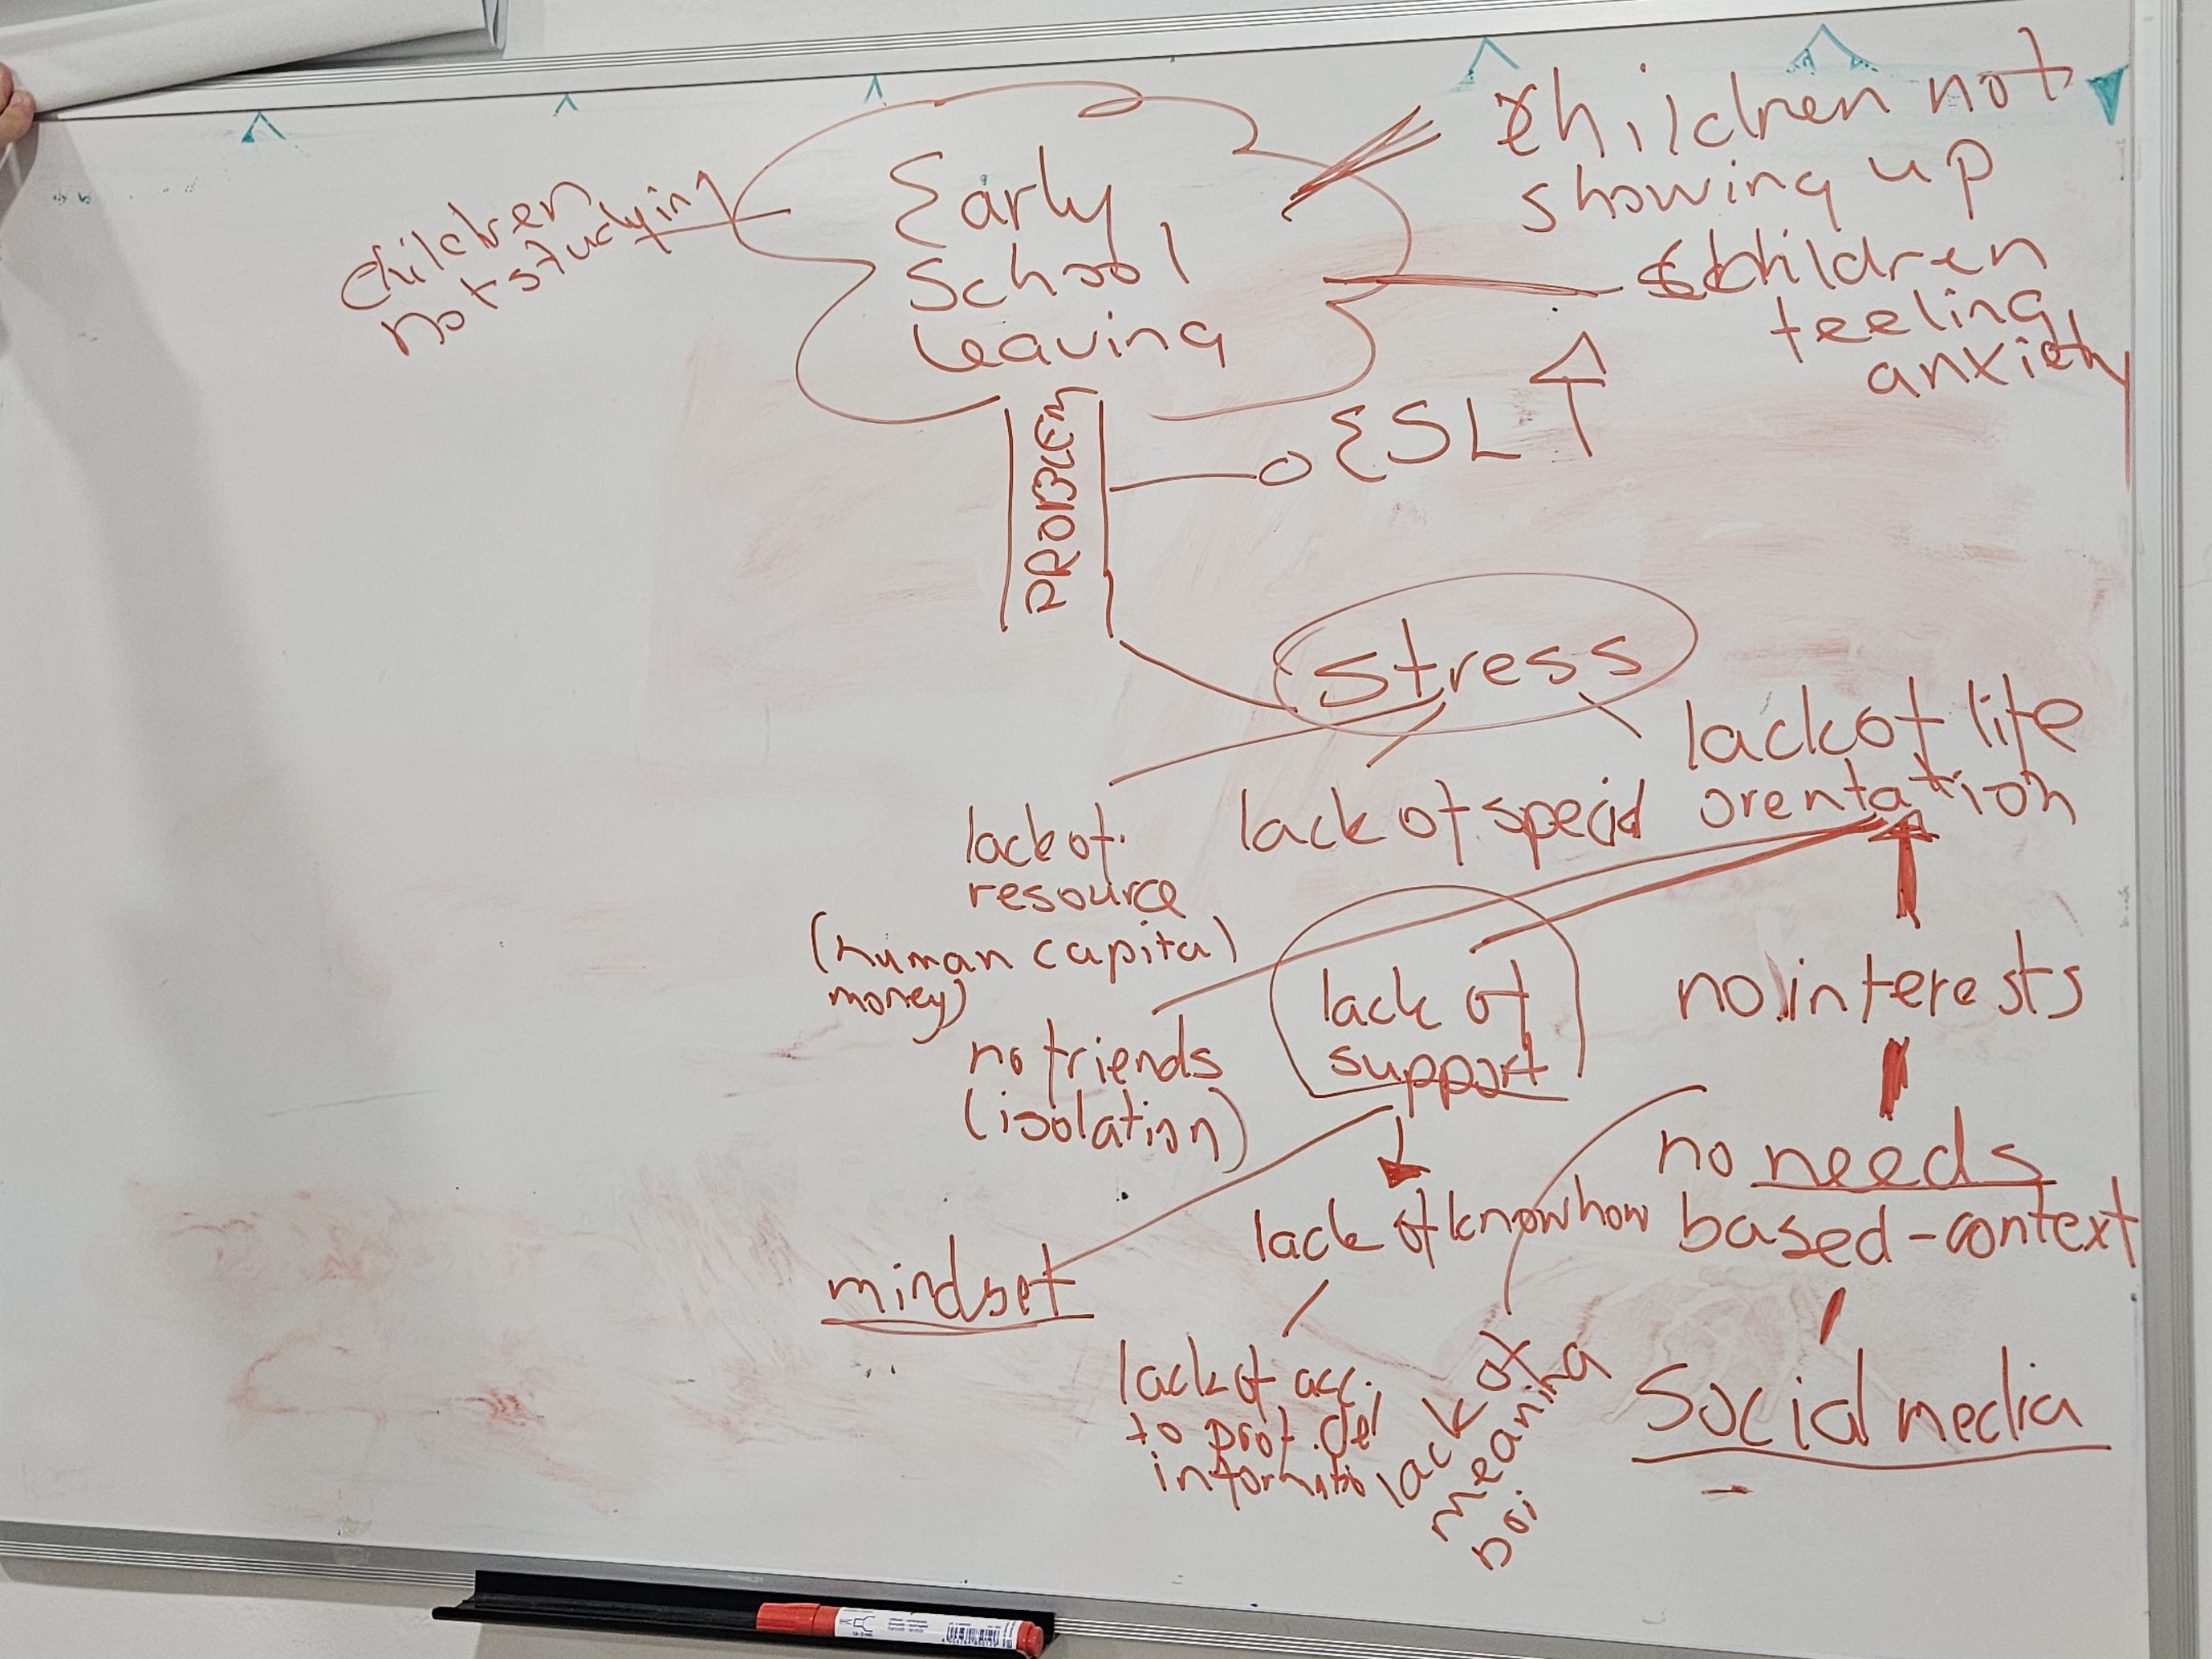 Early
School
Leaving
children not
showing up
children
feeling
anxiety
children
not studying
PROBLEM
ESL
stress
lack of life
orentation
lack of special
lack of
resource
(human capital
money)
no friends
(isolation)
lack of
support
no interests
no needs
based-context
lack of knowhow
mindset
lack of acc.
to prof.
lack of a
meaning
Social media